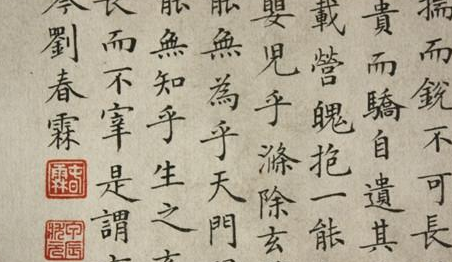 揣而銳不可長
貴而驕自遺其
載營魄抱一能
嬰兒乎滌除玄
能無為乎天門
能無知乎生之
長而不宰是謂
劉春霖
春霖
甲辰狀元